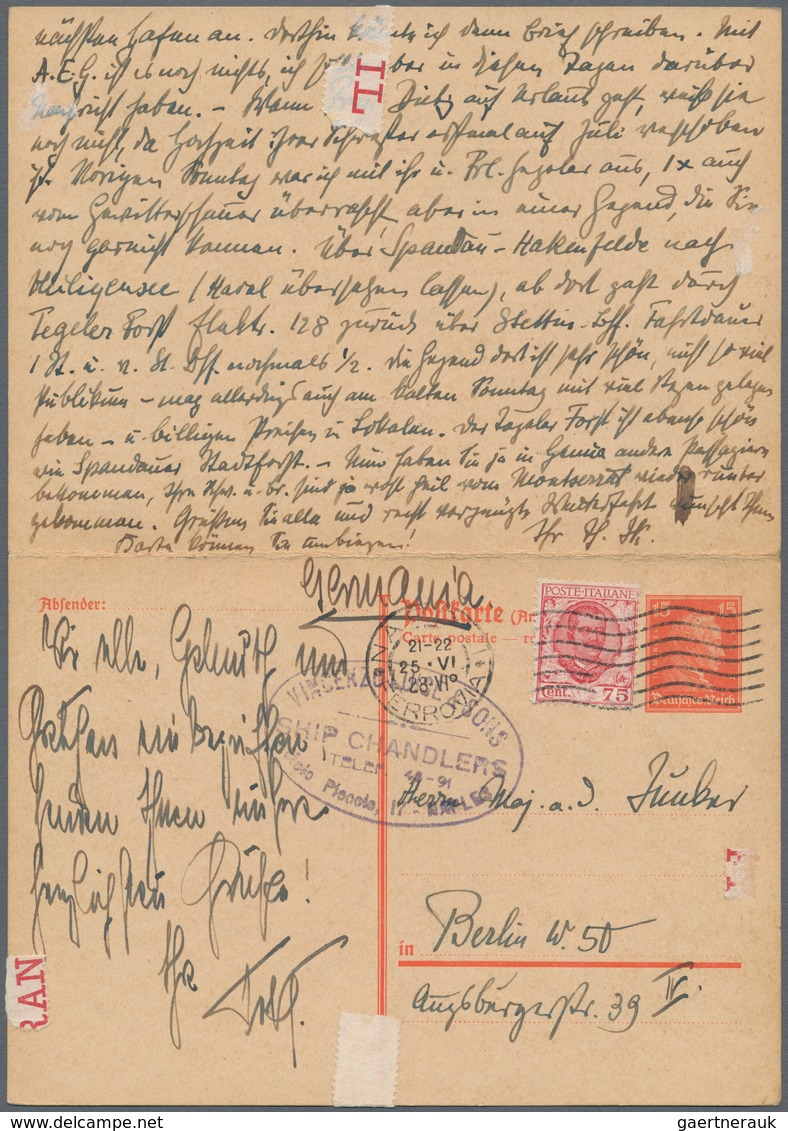 nächsten Hafen an. Dorthin könnte ich dann Brief schreiben. Mit
A.E.G. ist es noch nichts, ich aber in diesen Tagen darüber
Nachricht haben. – Wann Dietz auf Urlaub geht, weiß sie
noch nicht, da Hochzeit ihrer Schwester erstmal auf Juli verschoben
ist. Vorigen Sonntag war ich mit ihr u. Frl. Hegeler aus, 1x auch
vom Gewitterschauer überrascht, aber in einer Gegend, die Sie
noch garnicht kennen. Über Spandau – Hakenfelde nach
Heiligensee (Havel übersetzen lassen), ab dort zu durch
Tegeler Forst Elektr. 128 zurück über Stettin. Bhf. Fahrtdauer
1 St. u. v. St. Bhf. nochmals 1/2. Die Gegend dort ist sehr schön, nicht so viel
Publikum – mag allerdings auch am kalten Sonntag mit viel Regen gelegen
haben – u. billigen Preisen in Lokalen. Der Tegeler Forst ist ebenso schön
wie Spandauer Stadtforst. – Nun haben Sie ja in Genua andere Passagiere
bekommen, Ihre u. sind ja wohl heil vom Montserrat wieder runter
gekommen. Grüßen Sie alle und recht vergnügte Weiterfahrt wünscht Ihnen
Ihr
Karte können Sie umbiegen!
IL
Germania
Absender:
Postkarte
Carte postale
POSTE·ITALIANE
Cent. 75
15 15
Deutsches Reich
21-22
25·VI
28·VI°
FERROVIA
VINCENZO & SONS
SHIP CHANDLERS
TELEF.
Wir alle, Gehust und
senden Ihnen
herzlichsten Grüße!
Ihr
Herrn Maj. a. d. Junker
in Berlin W. 50
Augsburgerstr. 39 IV.
RAN
gaertnerauk